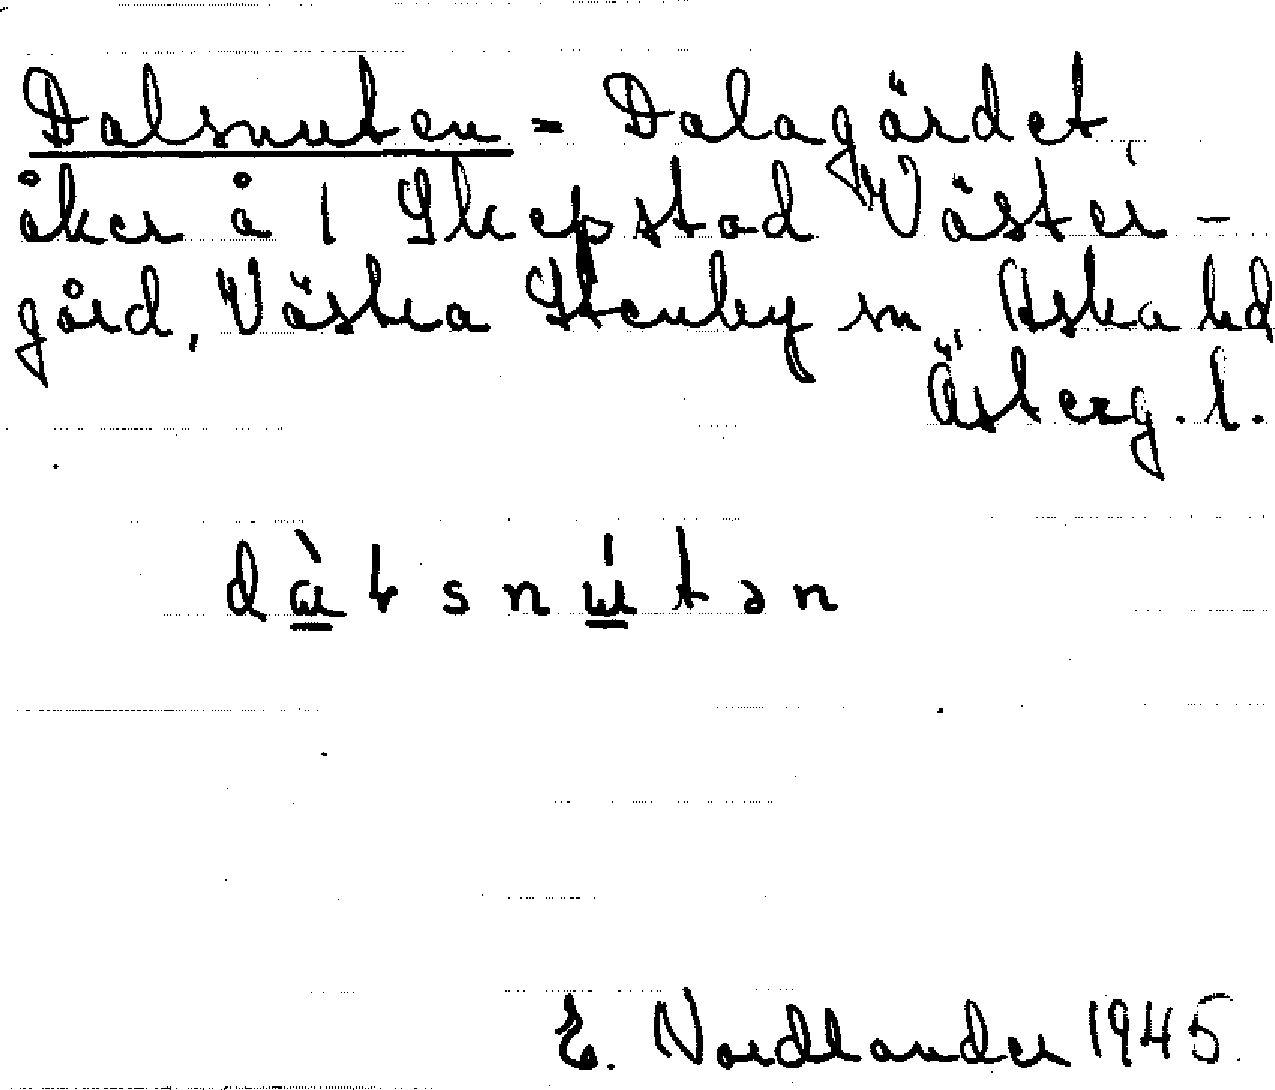 Dalsnuten = Dalagärdet,
åker å 1 Skepstad Väster-
gård, Västra Stenby sn, Aska hd
Österg. l.
E. Nordlander 1945.